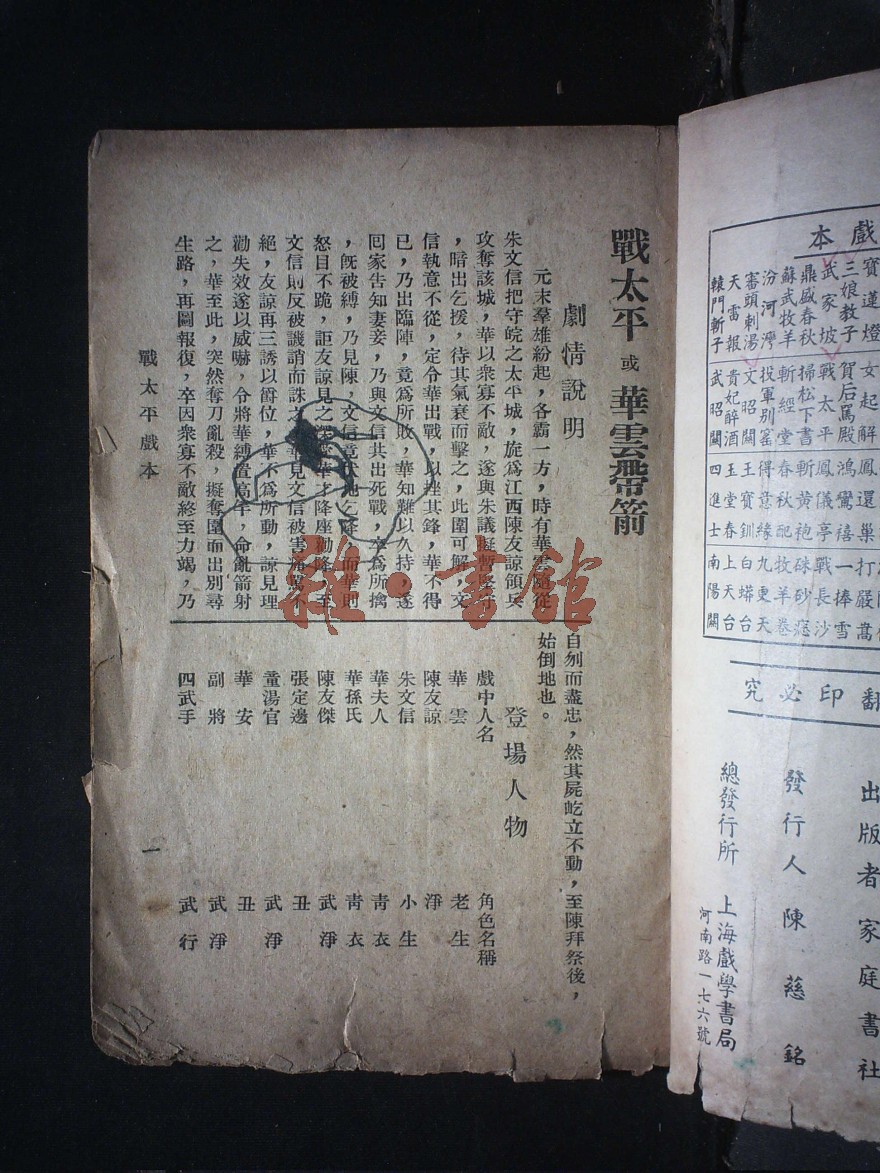 戰太平 或 華雲帶箭
劇情說明
元末羣雄紛起，各霸一方，時有華雲隨從
朱文信把守皖之太平城，旋爲江西陳友諒領兵
攻奪該城，華以衆寡不敵，遂與朱議擬暫堅守
，暗出乞援，待其氣衰而擊之，此圍可解，文
信執意不從，定令華出戰，以挫其鋒，華不得
已，乃出臨陣，竟爲所敗，華知難以久持，遂
回家告知妻妾，乃與文信共出死戰，卒爲所擒
，旣被縛，乃見陳，文信竟伏地乞降，而華則
怒目不跪，詎友諒見之，華才降座勸降，至
文信則反被譏誚而誅之，華見文信被害，萬不
絕，友諒再三誘以爵位，華不爲所動，諒見理
勸失效遂以威嚇，令將華縛置高竿，命亂箭射
之，華至此，突然奪刀亂殺，擬奪圍而出別尋
生路，再圖報復，卒因衆寡不敵終至力竭，乃
自刎而盡忠，然其屍屹立不動，至陳拜祭後，
始倒地也。
登場人物
戲中人名 角色名稱
華雲 老生
陳友諒 淨
朱文信 小生
華夫人 青衣
華孫氏 青衣
陳友傑 武淨
張定邊 丑
童湯官 武淨
華安 丑
副將 武淨
四武手 武行
戰太平戲本
一
戲本
寶蓮燈 女起解
三娘教子 賀后罵殿 鴻鸞禧 一捧雪
武家坡 戰太平 鳳儀亭 戰長沙
鼎盛春秋 掃松下書 斬黃袍 硃砂痣
蘇武牧羊 斬經堂 春秋配 牧羊卷
汾河灣 投軍別窰 得意緣 九更天
審頭刺湯 文昭關 王寶釧 白蟒台
天雷報 貴妃醉酒 玉堂春 上天台
轅門斬子 武昭關 四進士 南陽關
翻印必究
出版者家庭書社
發行人陳慈銘
總發行所 上海戲學書局
河南路一七六號
雜·書館